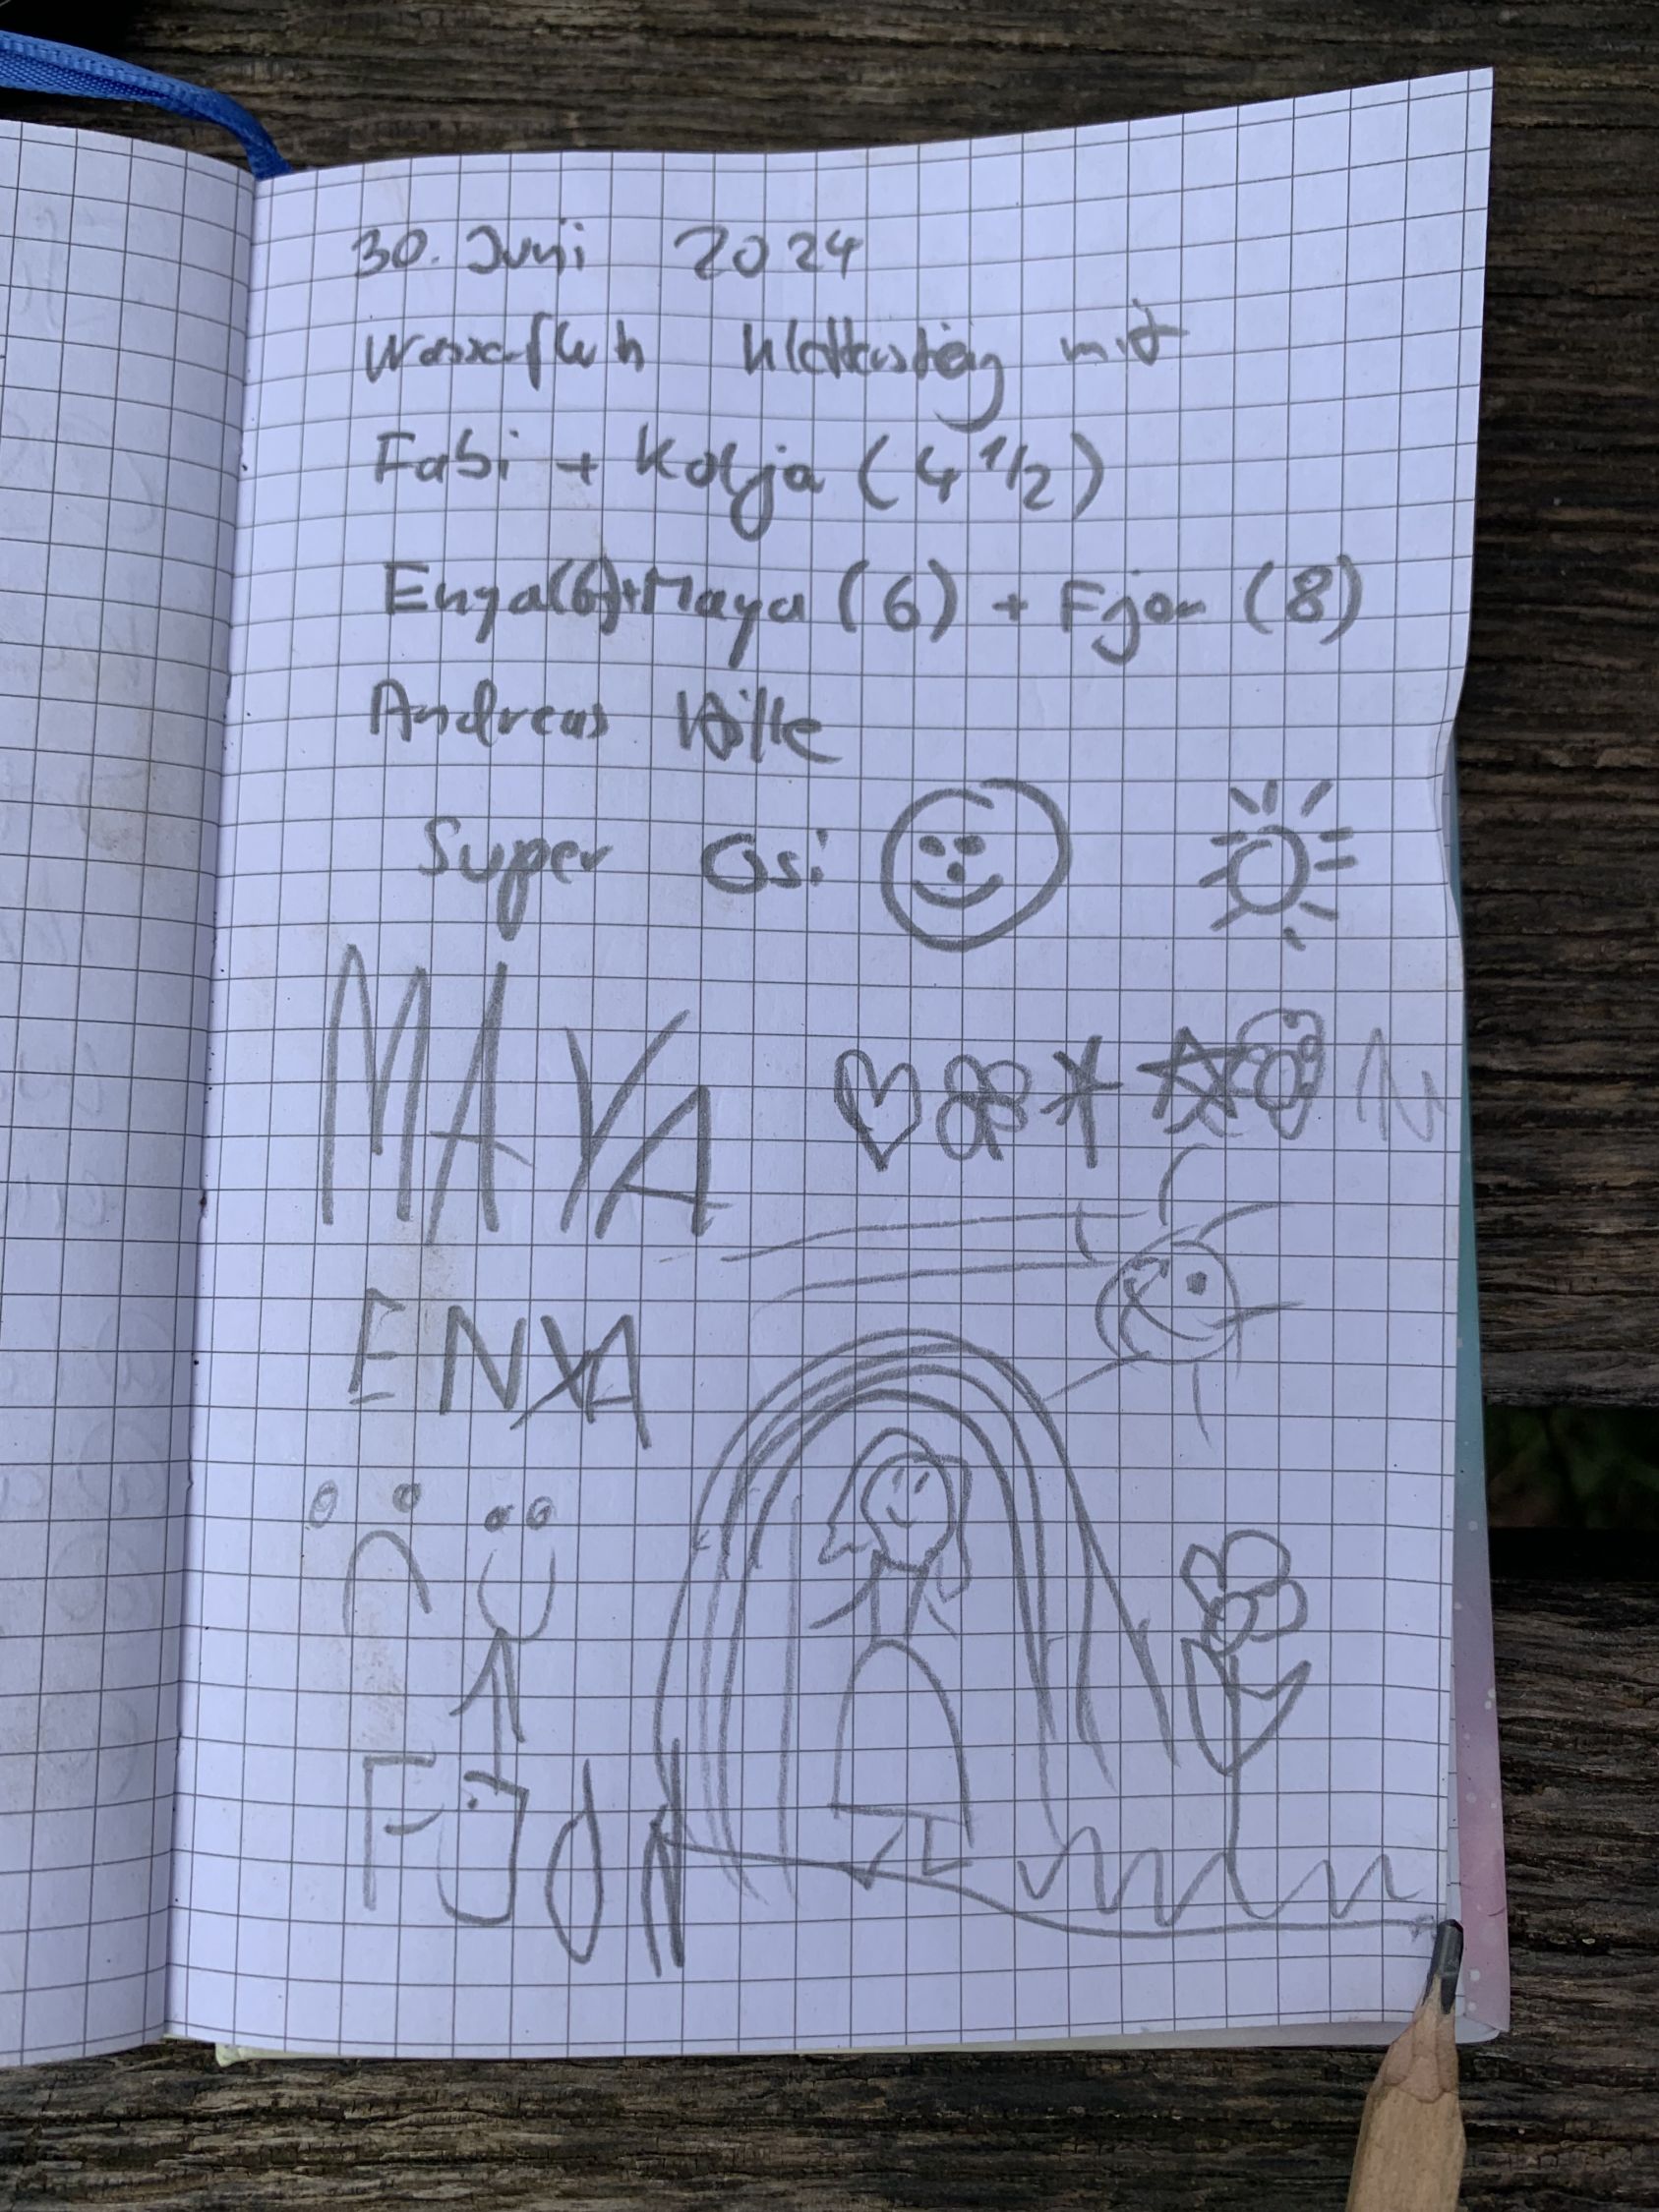 30. Juni 2024
Wasserfluh Klettersteig mit
Fabi + Kolja (4 1/2)
Enya(6)+Maya (6) + Fjon (8)
Andreas
Super Gsi
MAYA
ENYA
FJON